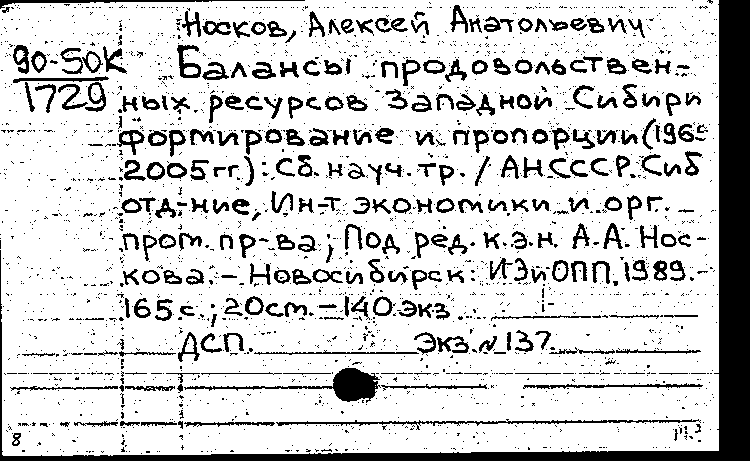 Носков, Алексей Анатольевич
90-50К
1729
Балансы продовольствен-
ных ресурсов Западной Сибири
формирование и пропорции (196
2005 гг.): Сб. науч. тр. / АН СССР. Сиб
отд-ние, Ин-т экономики и орг.
пром. пр-ва; Под ред. к.э.н. А.А. Нос-
кова. – Новосибирск: ИЭиОПП, 1989. –
165 с.; 20 см. – 140 экз
ДСП. Экз. № 137.
8